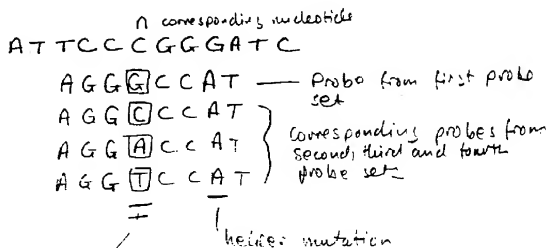 n corresponding nucleotide
ATTCCCGGGATC
AGGGCCAT — Probe from first probe set
AGGCCCAT
AGGACCAT
AGGTCCAT
corresponding probes from
second, third and fourth
probe set
I
mutation